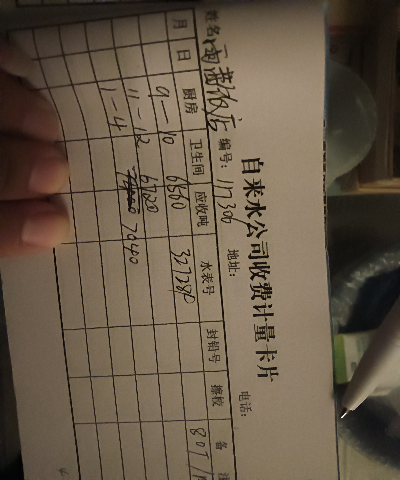 自来水公司收费计量卡片
姓名 编号: 11730 地址: 电话:
月 日 厨房 卫生间 应收吨 水表号 封铅号 擦校 备注
9-10 6560 327284 80T/
11-12 6720
1-4 7040